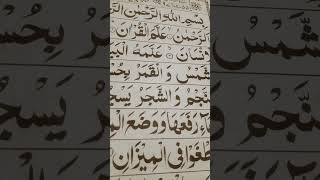 بِسْمِ اللهِ الرَّحْمٰنِ الرَّ
لرَّحْمٰنُ عَلَّمَ الْقُرْاٰنَ
نْسَانَ عَلَّمَهُ الْبَيَ
شَّمْسُ وَ الْقَمَرُ بِحُسْ
نَّجْمُ وَّ الشَّجَرُ يَسْجُ
ءَ رَفَعَهَا وَ وَضَعَ الْمِ
طْغَوْا فِي الْمِيْزَانِ